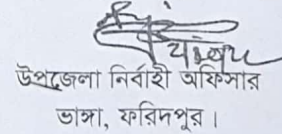 উপজেলা নির্বাহী অফিসার
ভাঙ্গা, ফরিদপুর।